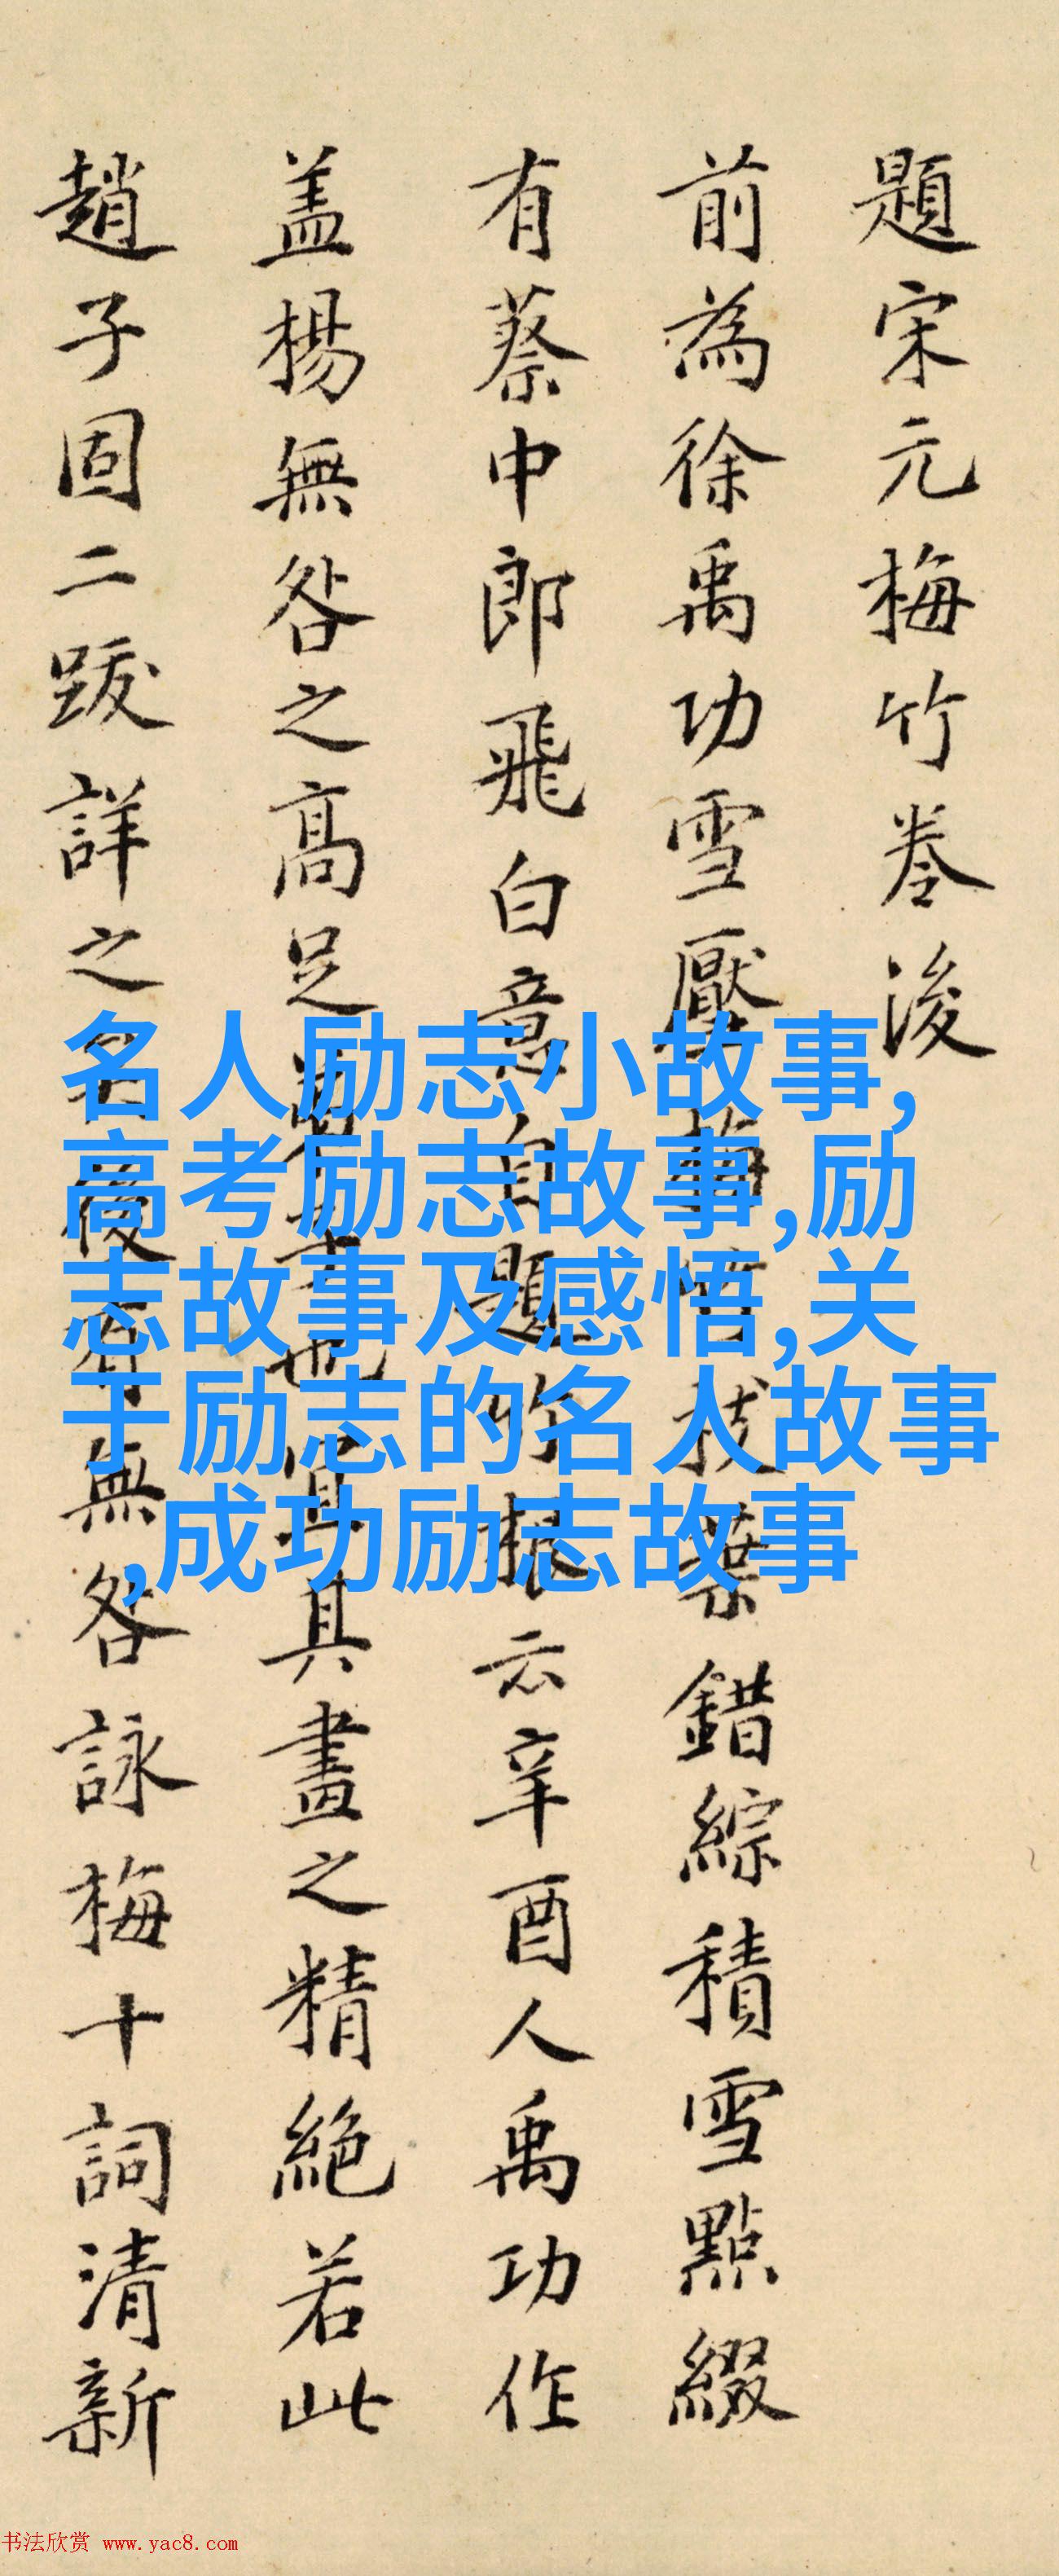 題宋元梅竹卷後
前為徐禹功雪壓梅竹枝葉錯綜積雪點綴
有蔡中郎飛白意自題竹根云辛酉人禹功作
盖楊無咎之高足也宜其畫之精絶若此
趙子固二跋詳之後有無咎詠梅十詞清新
名人励志小故事,
高考励志故事,励
志故事及感悟,关
于励志的名人故事
,成功励志故事
书法欣赏 www.yac8.com